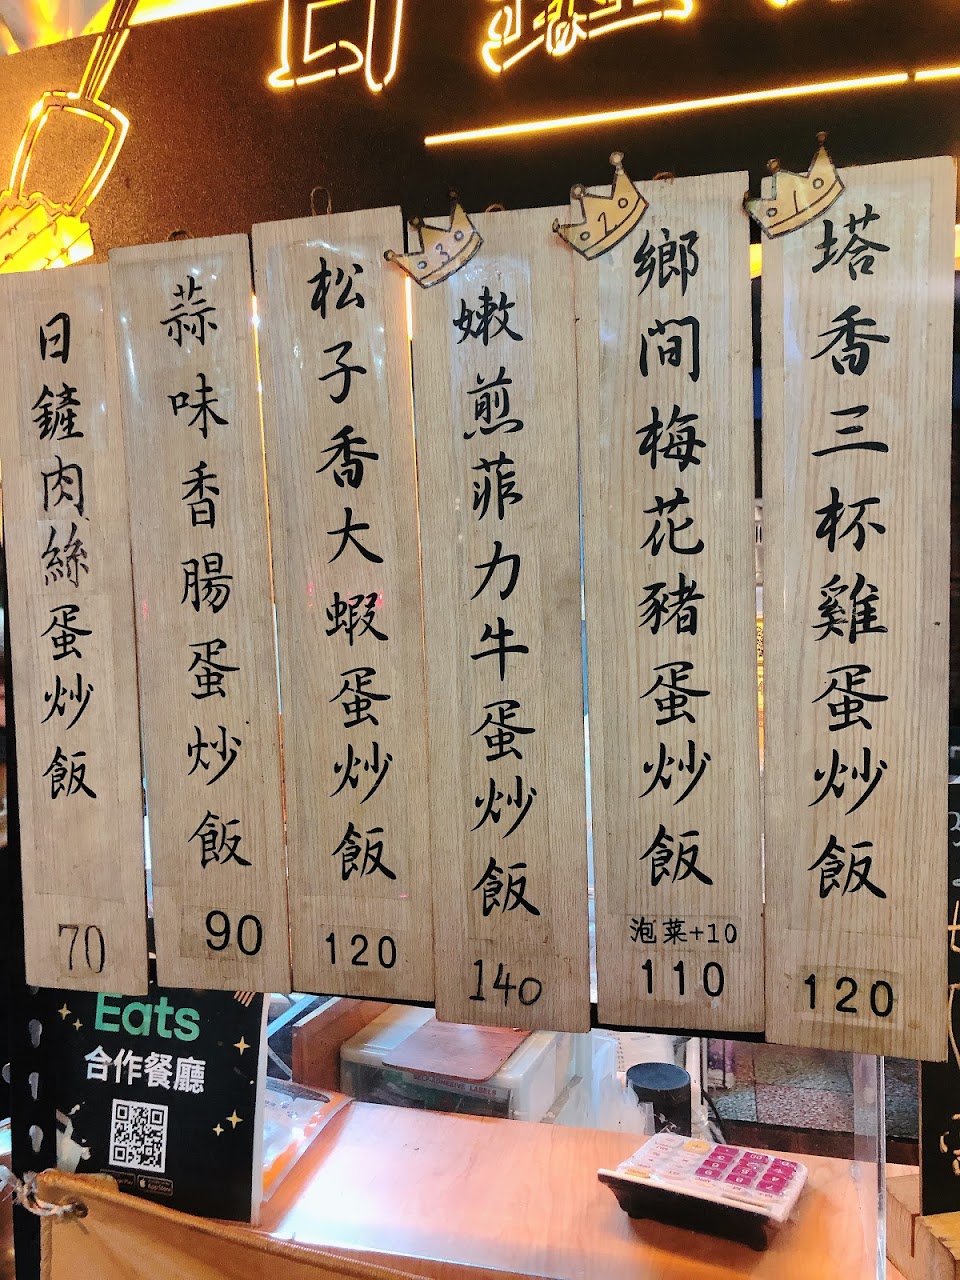 1
塔香三杯雞蛋炒飯
120
2
鄉間梅花豬蛋炒飯
泡菜+10
110
3
嫩煎菲力牛蛋炒飯
140
松子香大蝦蛋炒飯
120
蒜味香腸蛋炒飯
90
日鏟肉絲蛋炒飯
70
Eats
合作餐廳